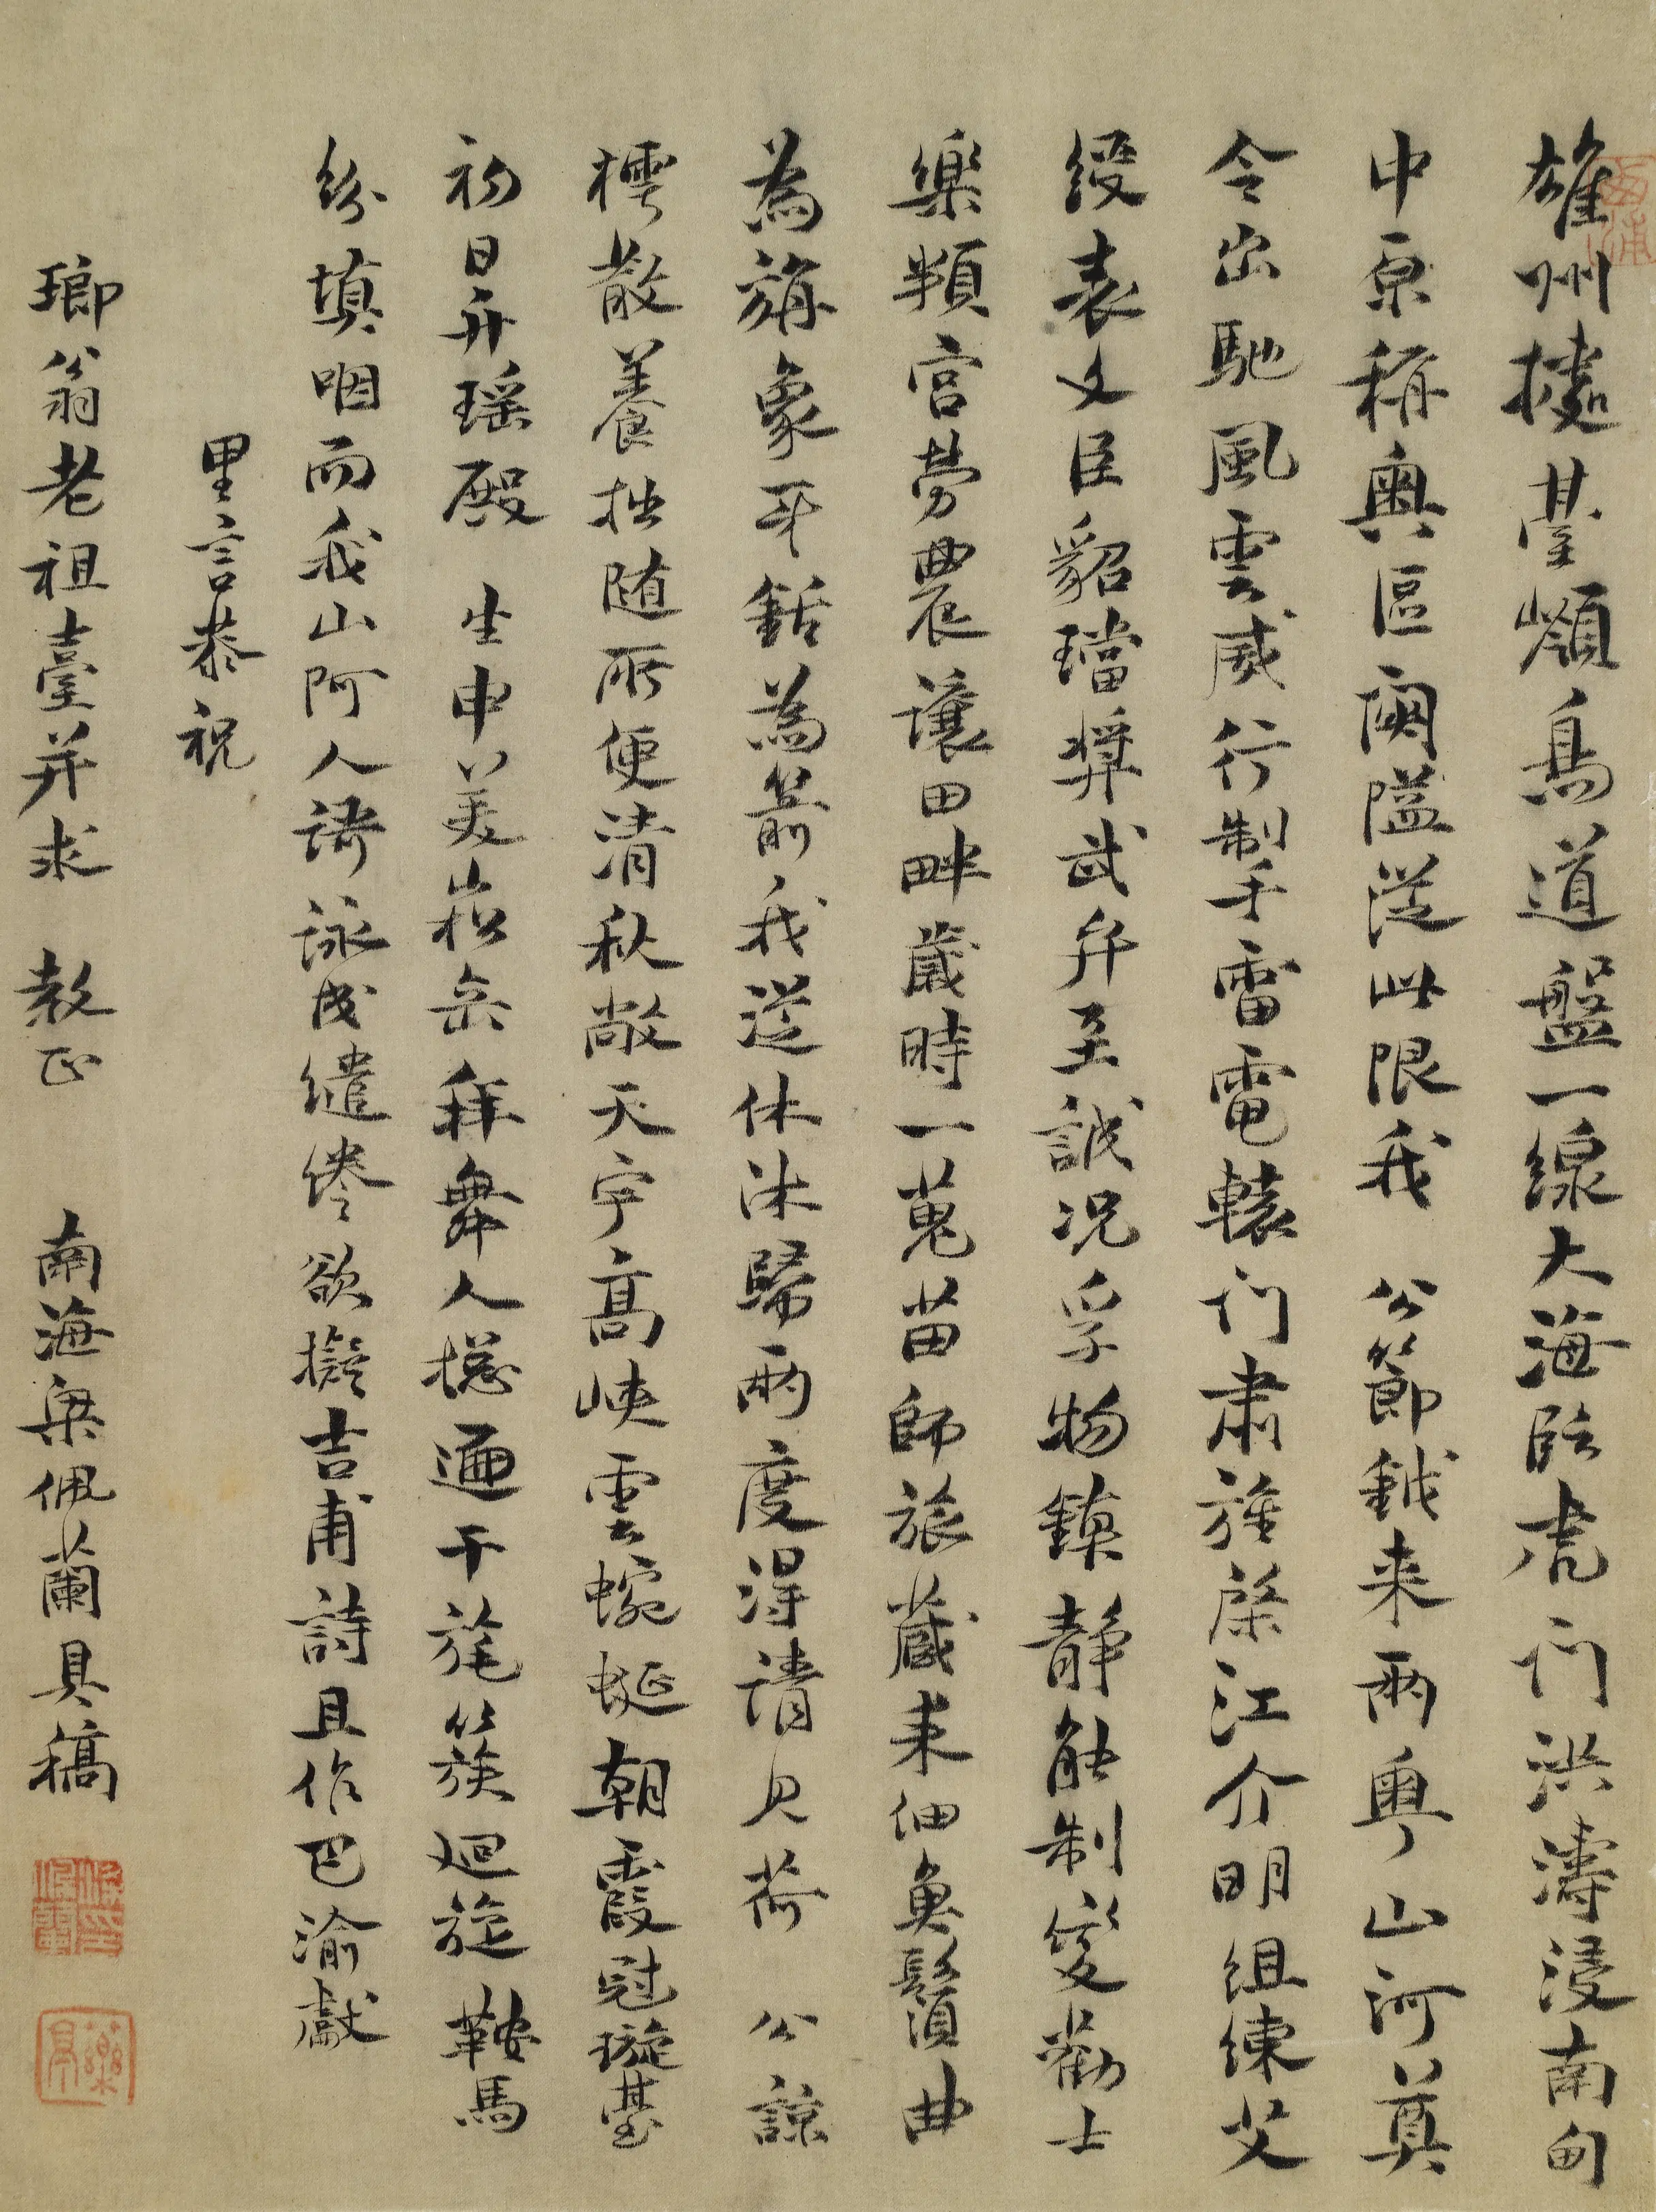 雄州據臺嶺鳥道盤一線大海臨虎门洪濤浸南甸
中原稱奧區闗隘從此限我 公節鉞来兩粤山河奠
令出馳風雲威行掣雷電轅门肅旌棨江介明組練艾
綬表文臣貂璫奨武弁至誠况孚物鎮静能制変勸士
樂頖宫勞農讓田畔歲時一蒐苗師旅蔵耒佃魚鬚曲
為旃象牙銛為箭我從休沐歸兩度得请見荷 公諒
樗散養拙随所便清秋敞天宇髙峽雲蜿蜒朝霞冠璇臺
初日升瑶殿 生申美崧岳拜舞人摠遍干旄簇廻旋鞍馬
紛填咽而我山阿人謌詠成繾綣欲擬吉甫詩且作巴渝獻
里言恭祝
瑯翁老祖臺并求 教正 南海梁佩蘭具稿